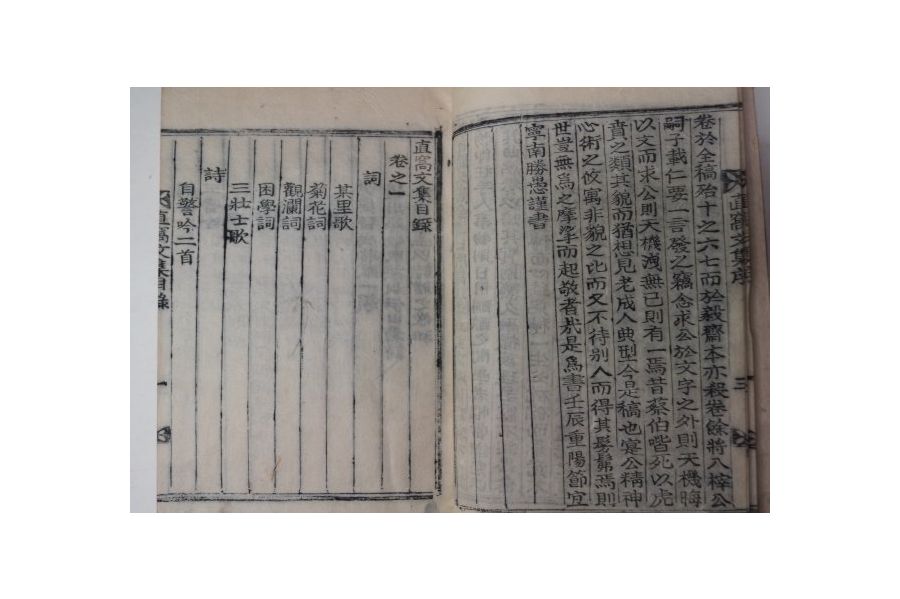 卷於全稿殆十之六七而於毅齋本亦殺卷餘將入梓公
嗣子載仁要一言發之竊念求公於文字之外則天機晦
以文而求公則天機洩無已則有一焉昔蔡伯喈死以虎
賁之類其貌而猶想見老成人典型今是稿也寔公精神
心術之攸寓非貌之比而又不待別人而得其髣髴焉則
世豈無爲之摩挲而起敬者哉是爲書壬辰重陽節宜
寧南勝愚謹書
直窩文集序
三
直窩文集目錄
卷之一
詞
某里歌
菊花詞
觀瀾詞
困學詞
三壯士歌
詩
自警吟二首
直窩文集目錄
一